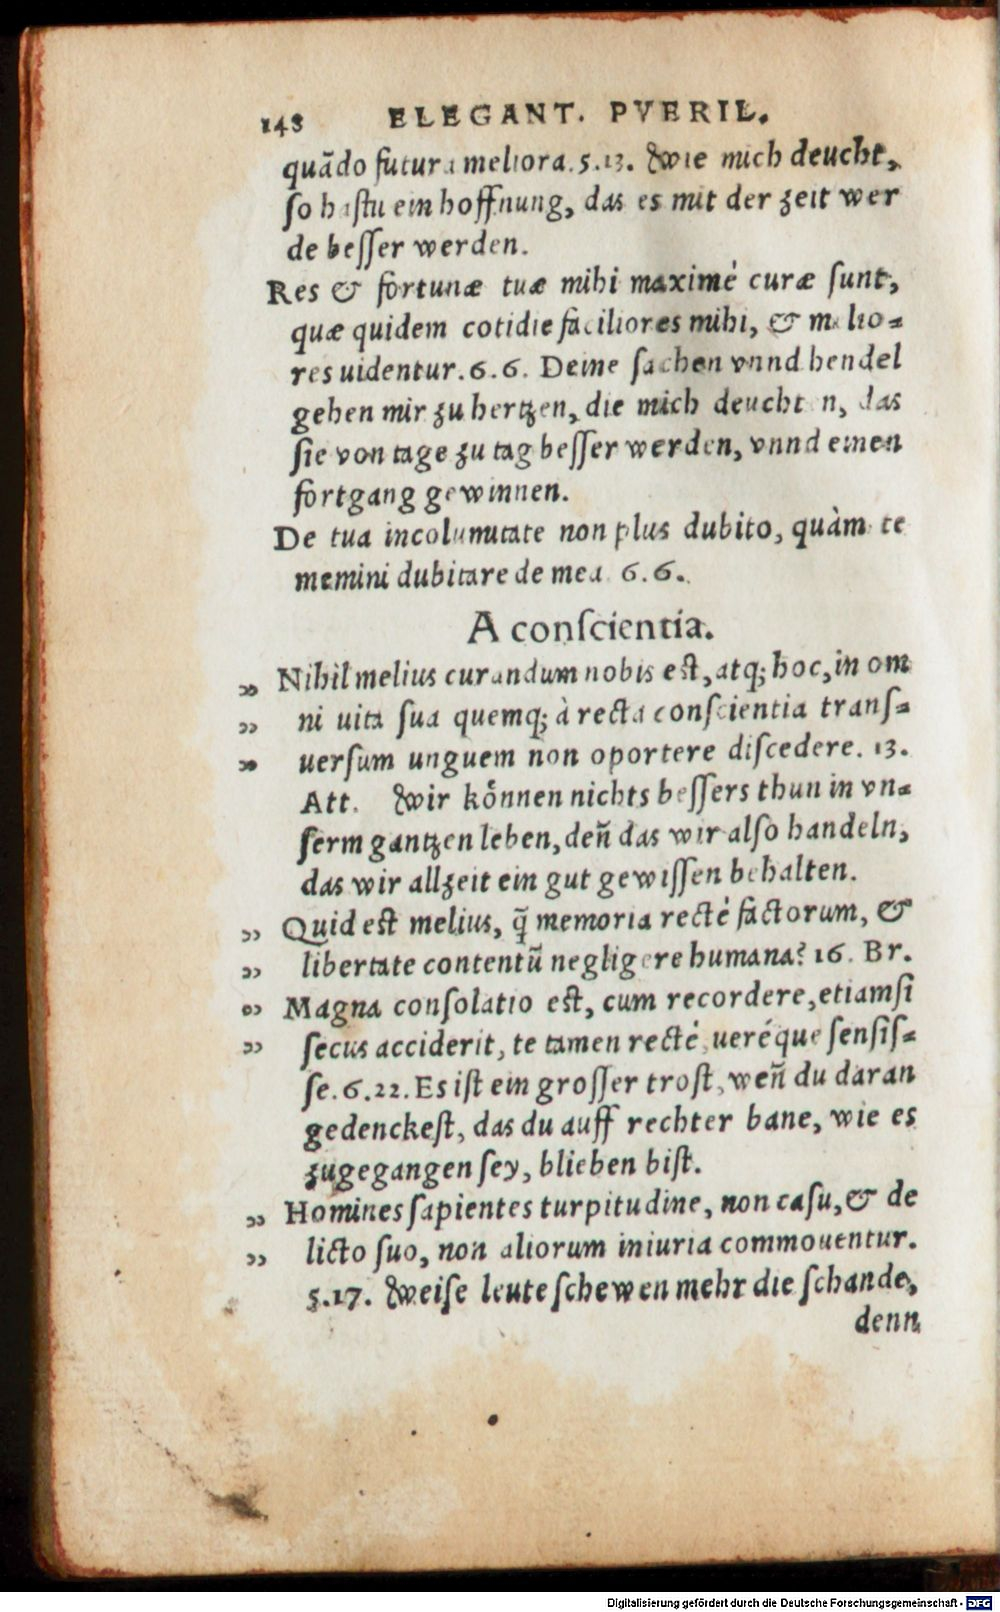 148 ELEGANT. PVERIL.
quãdo futura meliora. 5. 13. Wie mich deucht,
ſo haſtu ein hoffnung, das es mit der zeit wer
de beſſer werden.
Res & fortunæ tuæ mihi maximé curæ ſunt,
quæ quidem cotidie faciliores mihi, & melio=
res uidentur. 6. 6. Deine ſachen vnnd hendel
gehen mir zu hertzen, die mich deuchten, das
ſie von tage zu tag beſſer werden, vnnd einen
fortgang gewinnen.
De tua incolumitate non plus dubito, quàm te
memini dubitare de mea 6. 6.
A conſcientia.
„ Nihil melius curandum nobis eſt, atq; hoc, in om
„ ni uita ſua quemq; à recta conſcientia tranſ=
„ uerſum unguem non oportere diſcedere. 13.
Att. Wir koͤnnen nichts beſſers thun in vn=
ſerm gantzen leben, deñ das wir alſo handeln,
das wir allzeit ein gut gewiſſen behalten.
„ Quid eſt melius, q̃ memoria recté factorum, &
„ libertate contentũ negligere humana? 16. Br.
„ Magna conſolatio eſt, cum recordere, etiamſi
„ ſecus acciderit, te tamen recté, ueréque ſenſiſ=
ſe. 6. 22. Es iſt ein groſſer troſt, weñ du daran
gedenckeſt, das du auff rechter bane, wie es
zugegangen ſey, blieben biſt.
„ Homines ſapientes turpitudine, non caſu, & de
„ licto ſuo, non aliorum iniuria commouentur.
5. 17. Weiſe leute ſchewen mehr die ſchande,
denn
Digitalisierung gefördert durch die Deutsche Forschungsgemeinschaft - DFG